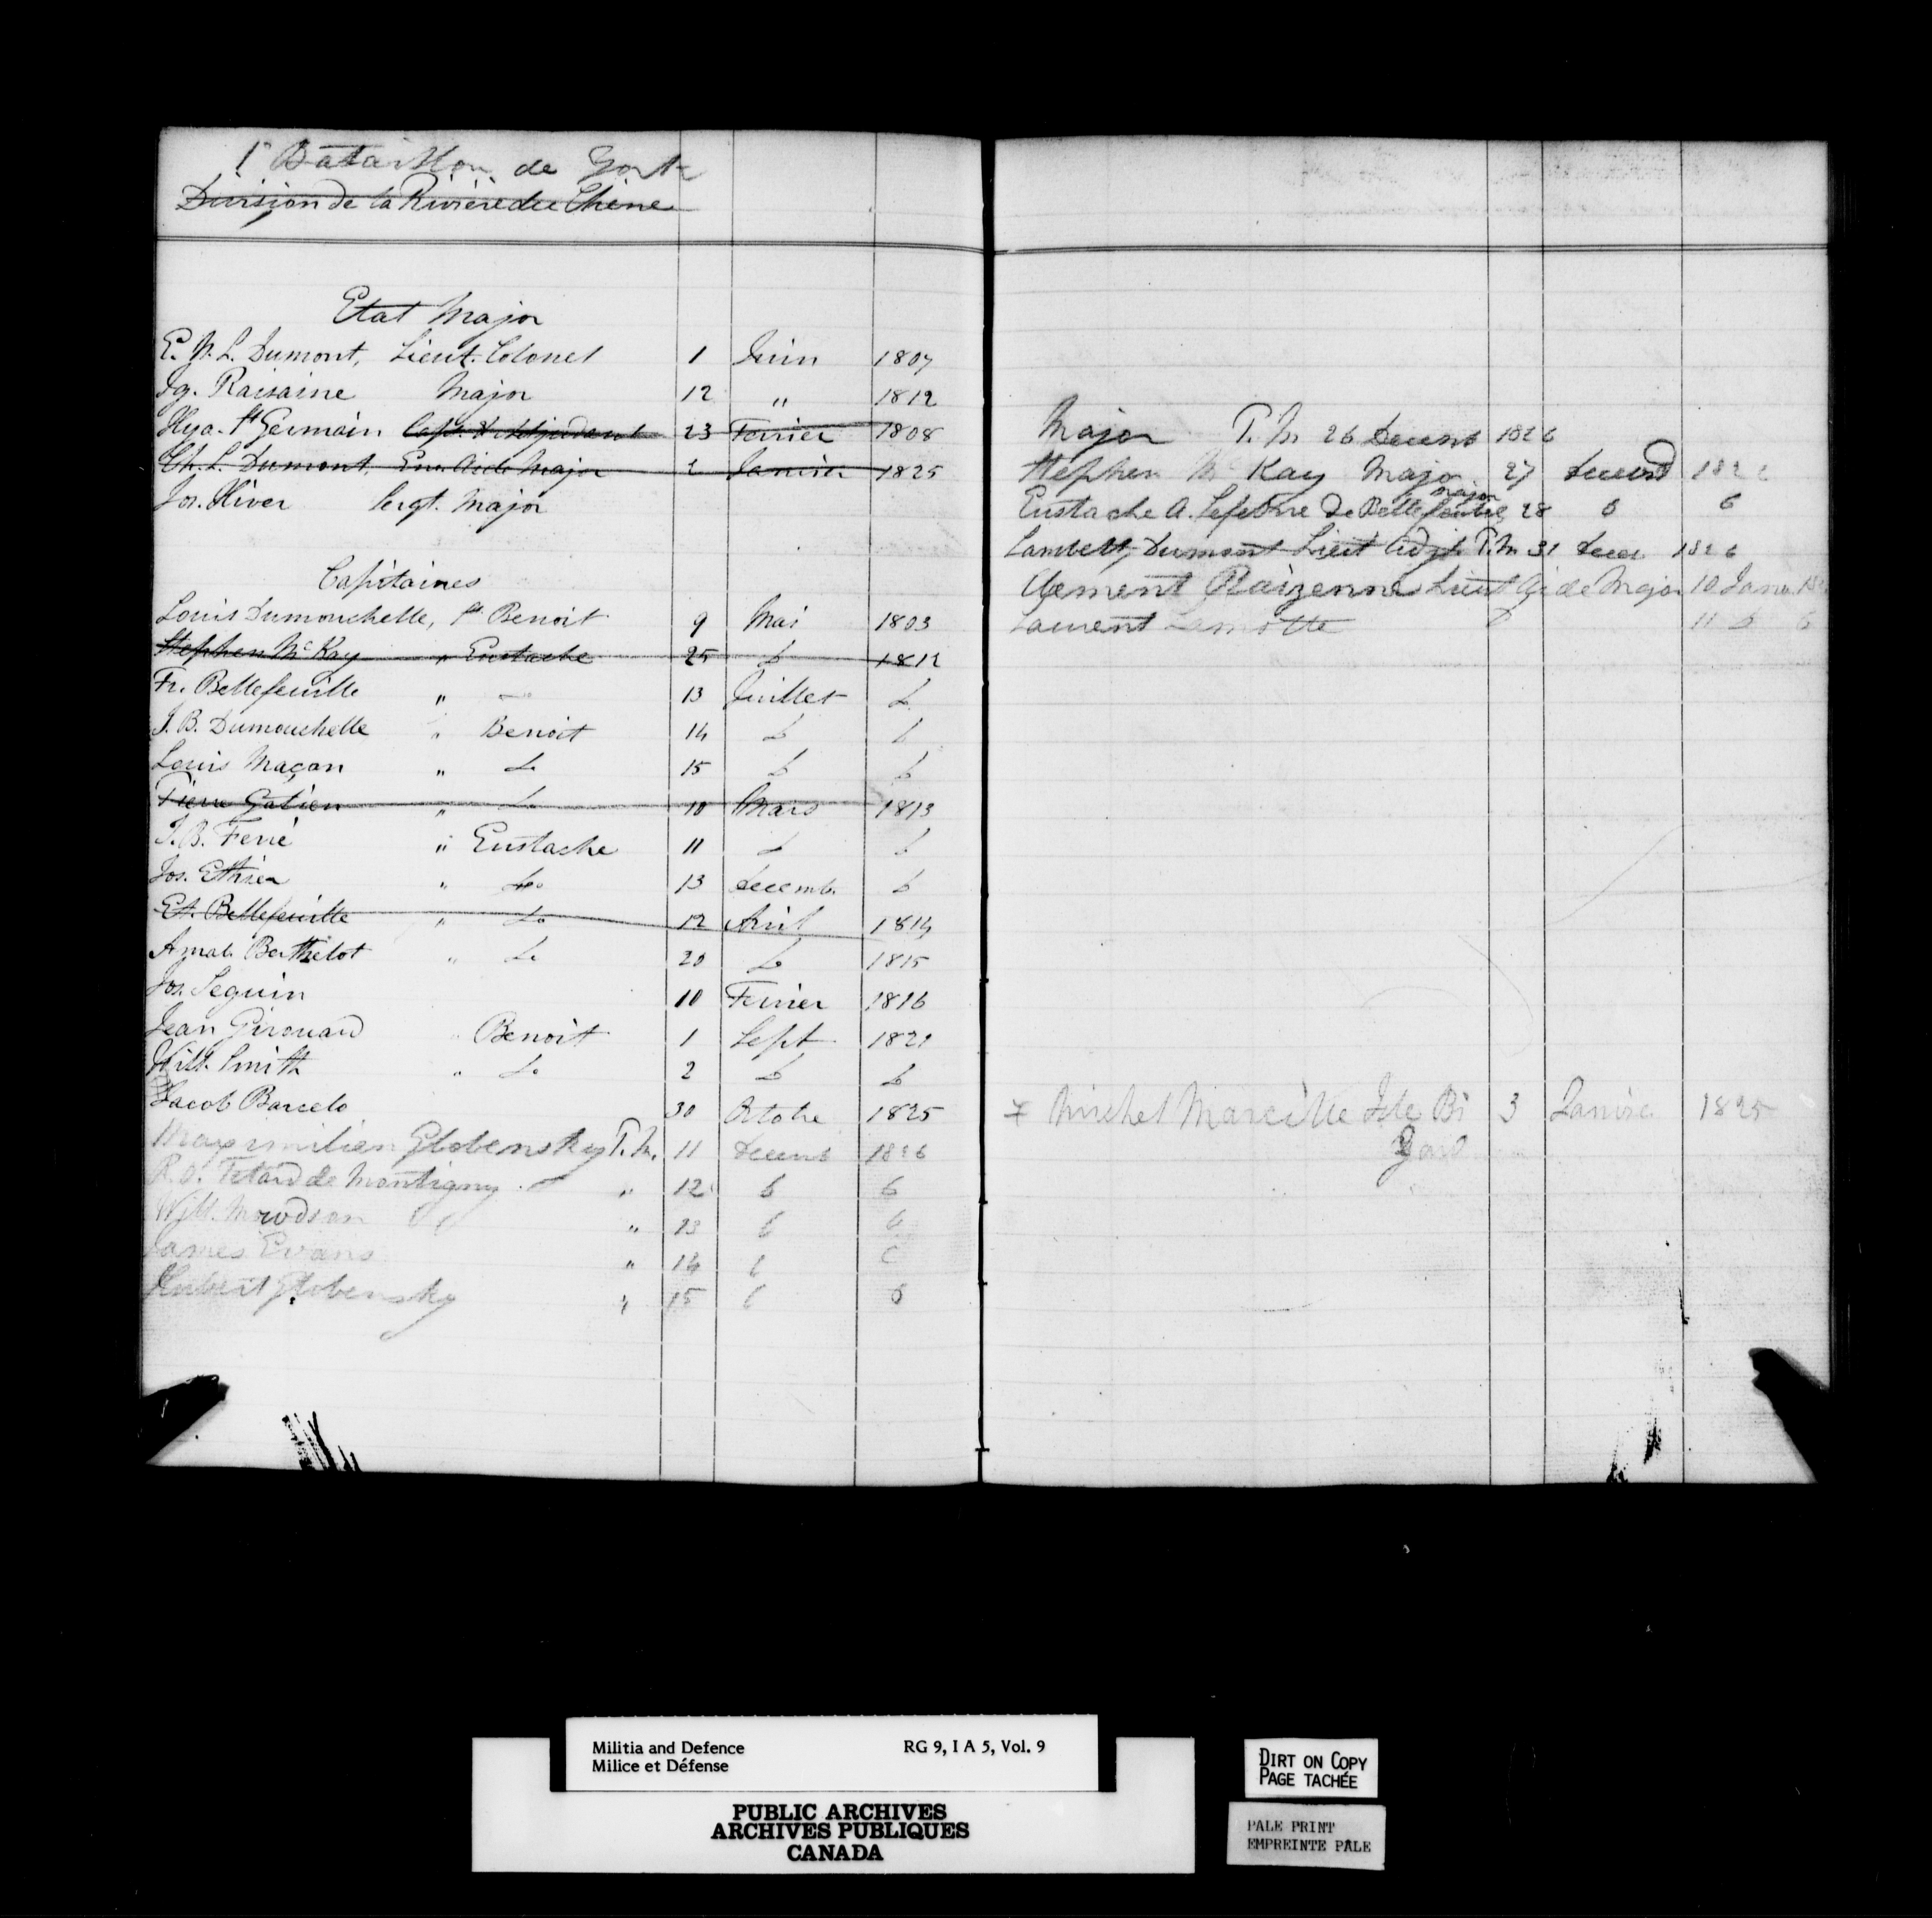 1r Bataillon de York
Division de la Rivière du Chêne
Etat Major
E. N. L. Dumont, Lieut. Colonel 1 Juin 1807
Ig. Raizaine Major 12 " 1812
Hya. St Germain Capt. & Adjudant 23 Fevrier 1808
Ch. L. Dumont, Ens. Aide Major 2 Janvier 1825
Jos. Hiver Sergt. Major
Capitaines
Louis Dumouchelle, St Benoit 9 Mai 1803
Stephen McKay " Eustache 25 do 1812
Fr. Bellefeuille " 13 Juillet do
J. B. Dumouchelle " Benoit 14 do do
Louis Maçon " do 15 do do
Pierre Gatien " do 10 Mars 1813
J. B. Ferré " Eustache 11 do do
Jos. Ethier " do 13 decemb. do
Et. Bellefeuille " do 12 Avril 1814
Amab. Berthelot " do 20 do 1815
Jos. Seguin 10 Fevrier 1816
Jean Girouard " Benoit 1 Sept 1821
Will. Smith " do 2 do do
Jacob Barcelo 30 Octobre 1825
Maximilien Globensky P.M. 11 Decemb 1826
R. O. Tetard de Montigny " 12 do do
Will. " 13 do do
James Evans " 14 do do
Hubert Globensky " 15 do do
Major P. M 26 Decemb 1826
Stephen Mc Kay Major 27 Decemb 182
major
Eustache A. Lefebvre De Bellefeuille 28 do do
Lambert Dumont Lieut Adjt P.M 31 Decem 1826
Clement Raizenne Lieut Aide Major 10 Janv
Laurent Lamotte do 11 do do
Michel Marcille Isle Bi 3 Janvier 1825
zard
Militia and Defence RG 9, I A 5, Vol. 9
Milice et Défense
PUBLIC ARCHIVES
ARCHIVES PUBLIQUES
CANADA
DIRT ON COPY
PAGE TACHÉE
PALE PRINT
EMPREINTE PÂLE